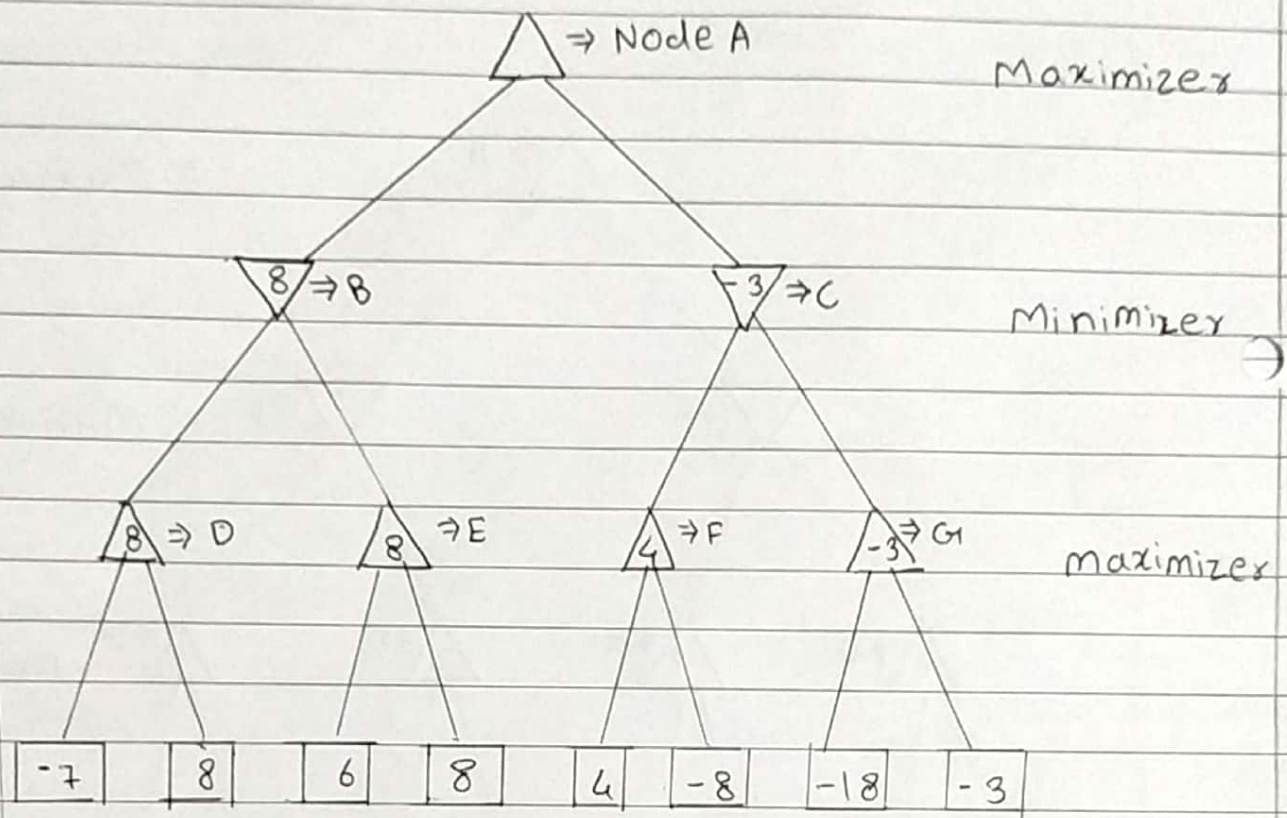 ⇒ Node A
Maximizer
8 ⇒ B
-3 ⇒ C
Minimizer
8 ⇒ D
8 ⇒ E
4 ⇒ F
-3 ⇒ G
maximizer
-7 8 6 8 4 -8 -18 -3